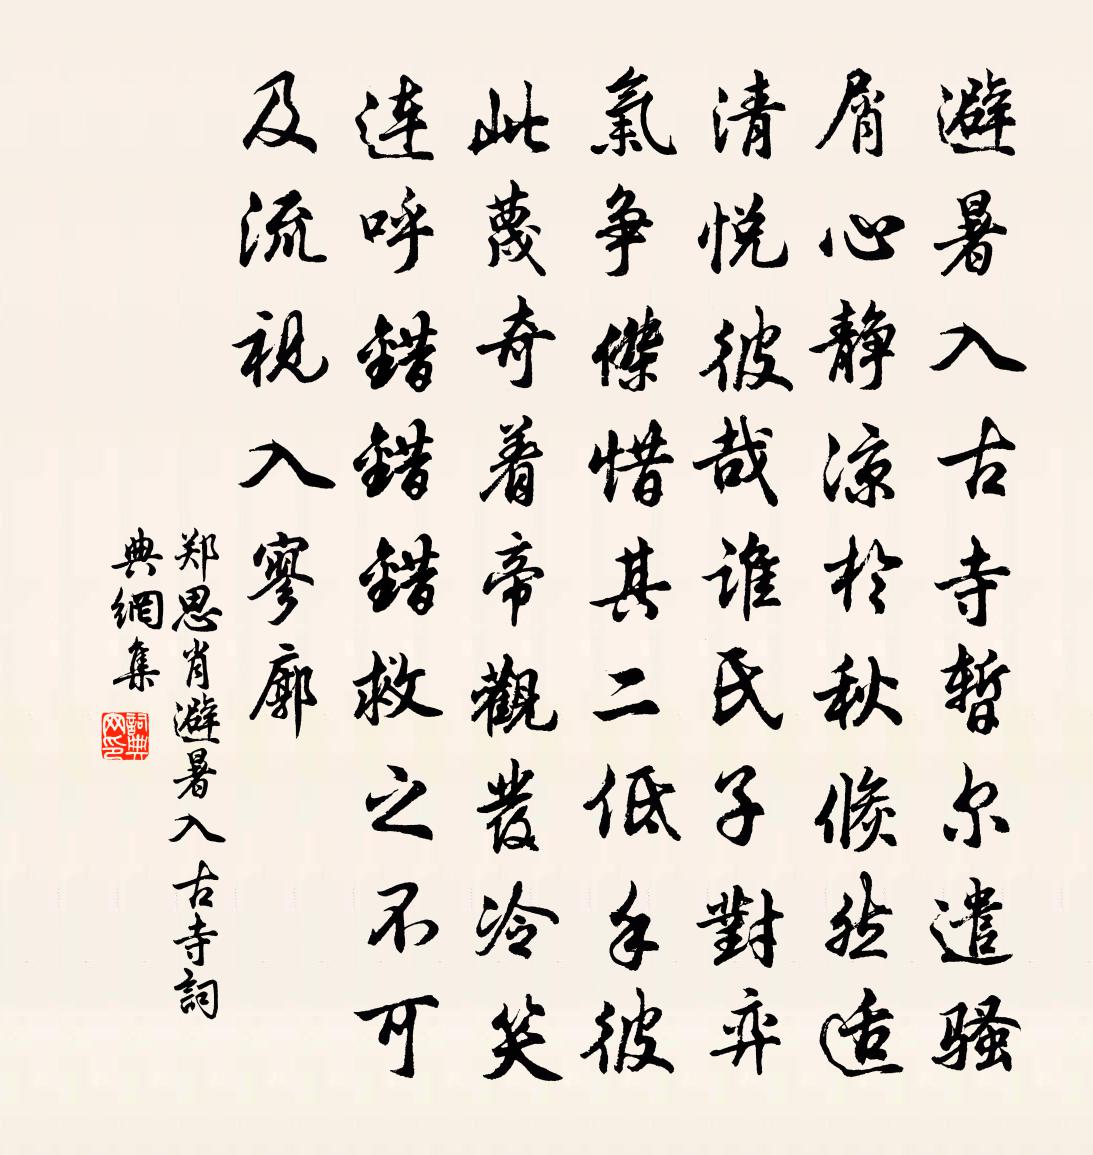 避暑入古寺暫尔遣骚
屑心静凉於秋倏然适
清悦彼哉谁氏子對弈
氣争傑惜其二低手彼
此蔑奇着帝觀發冷笑
连呼錯錯錯救之不可
及流視入寥廓
郑思肖避暑入古寺詞
典網集
詞典网印